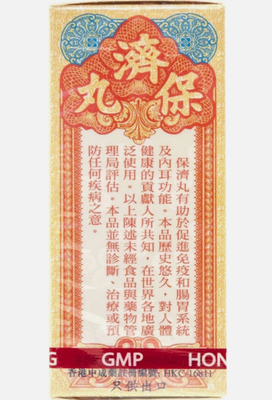 保濟丸
保濟丸有助於促進免疫和腸胃系統
及內耳功能。本品歷史悠久，對人體
健康的貢獻人所共知，在世界各地廣
泛使用。以上陳述未經食品與藥物管
理局評估。本品並無診斷、治療或預
防任何疾病之意。
G GMP HON
香港中成藥註冊編號: HKC-16811
只供出口